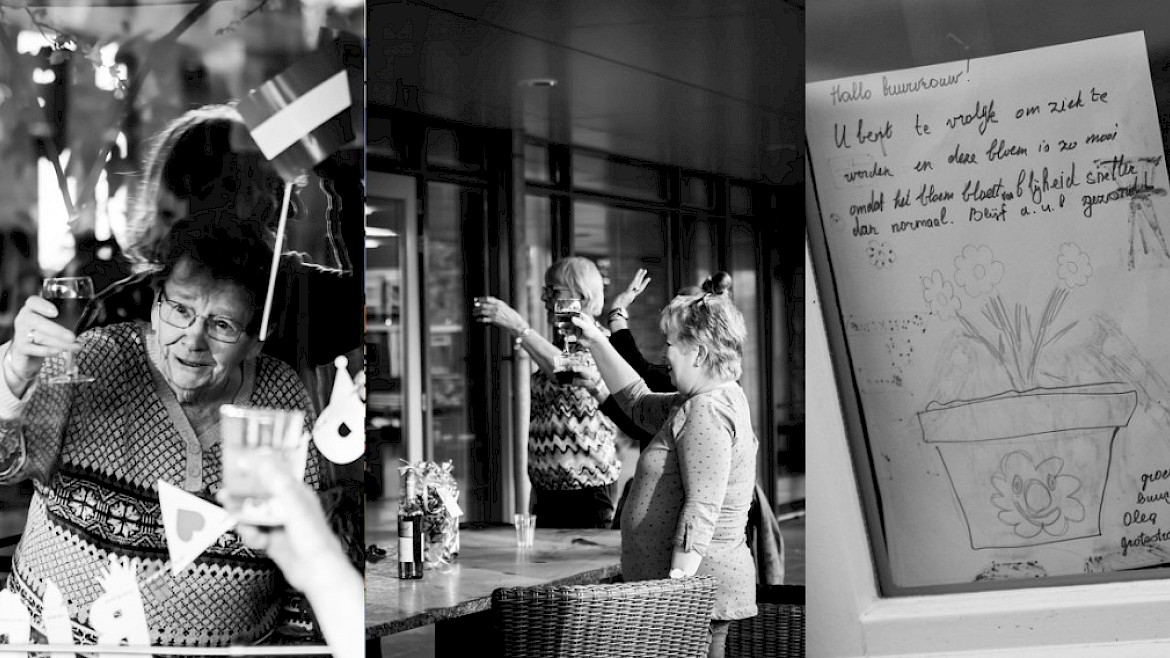 Hallo buurvrouw!
U bent te vrolijk om ziek te
worden en deze bloem is zo mooi
omdat het bloem bloedt van blijheid sneller
dan normaal. Blijf a.u.b gezond!!
groe
buur
Oleg